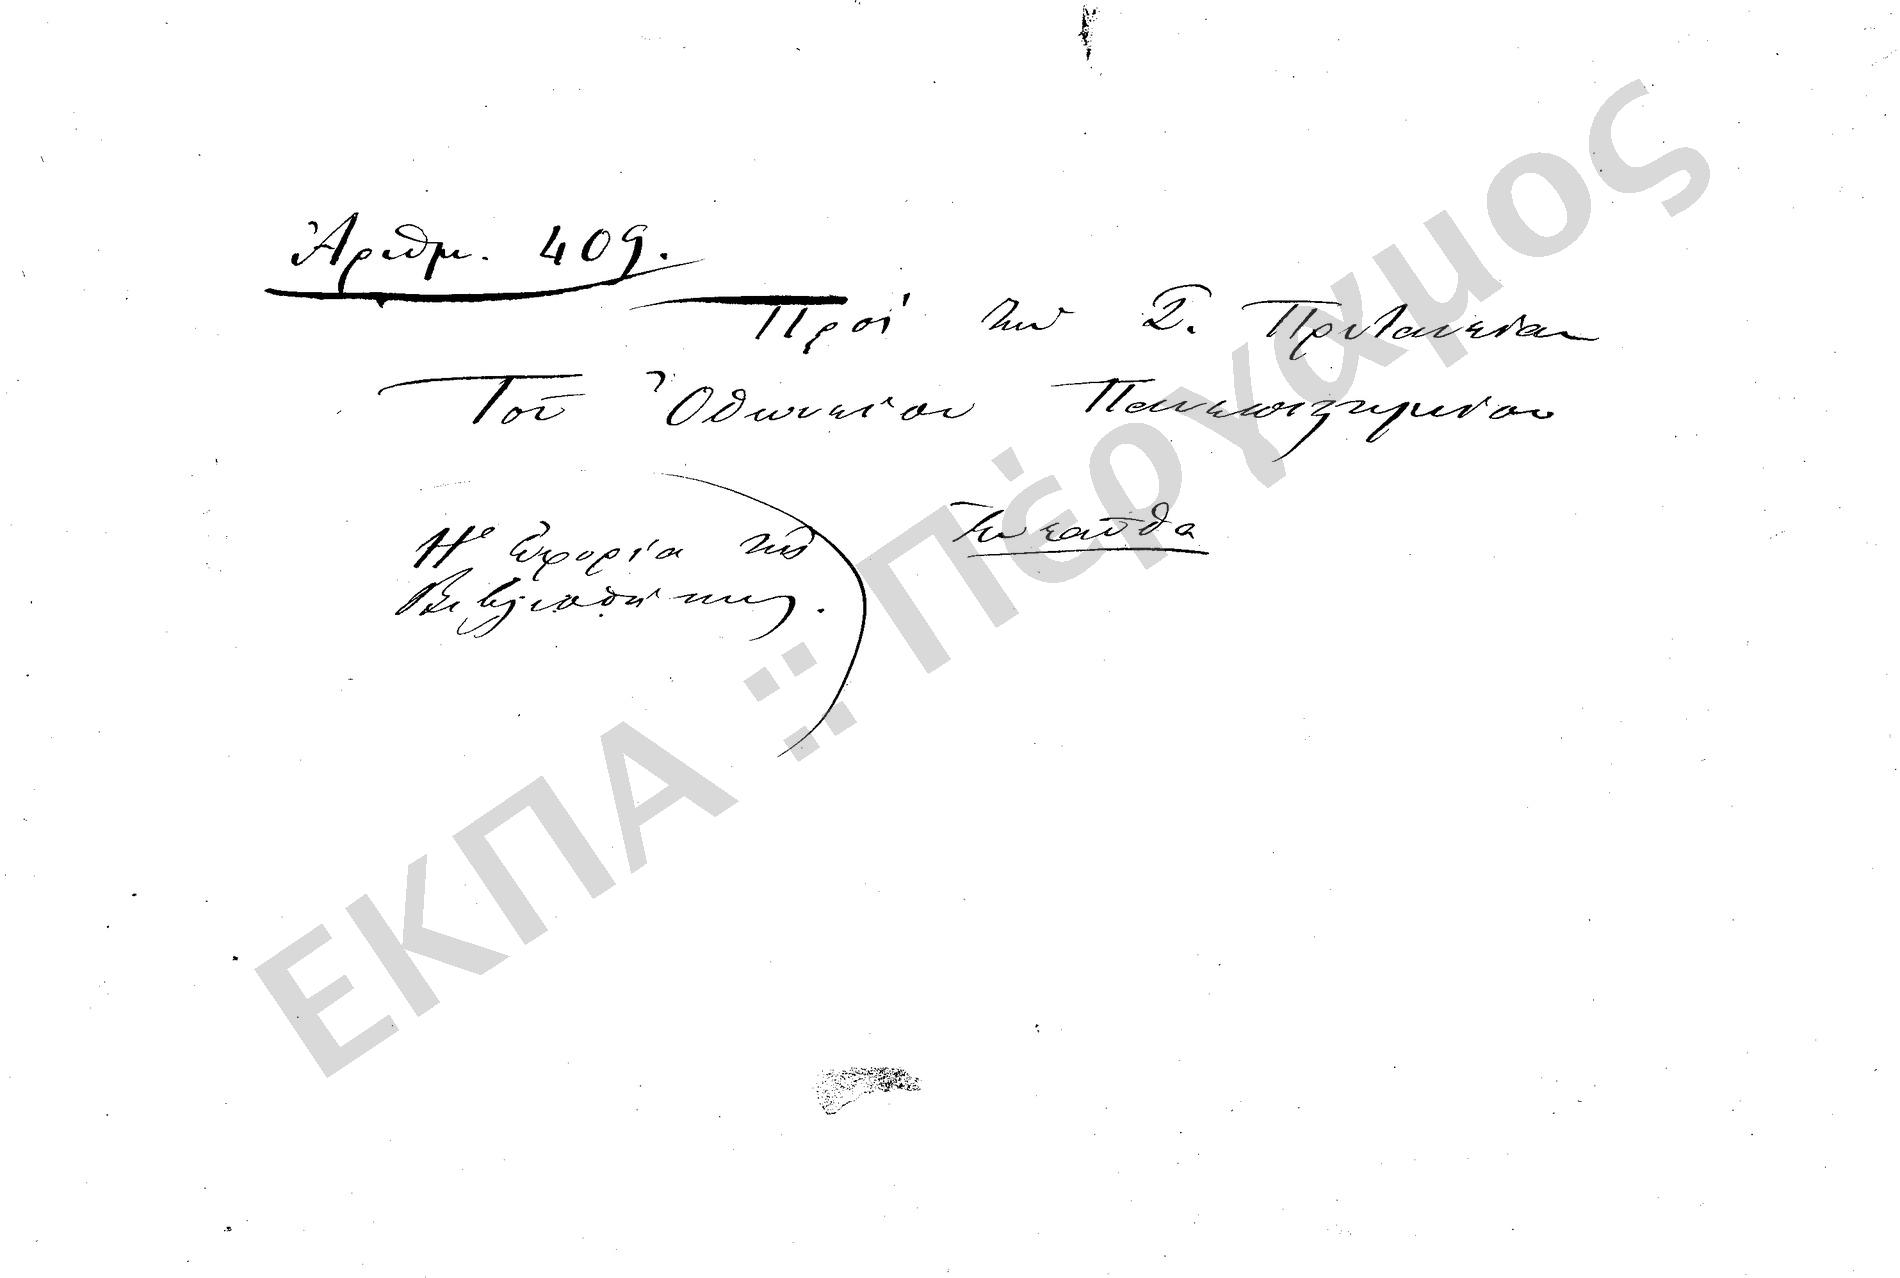 Ἀριθμ. 409.
Πρὸς τὴν Σ. Πρυτανείαν
Τοῦ Ὀθωνείου Πανεπιστημίου
Ἐνταῦθα
Ἡ Ἐφορία τῆς
Βιβλιοθήκης.
ΕΚΠΑ :: Πέργαμος